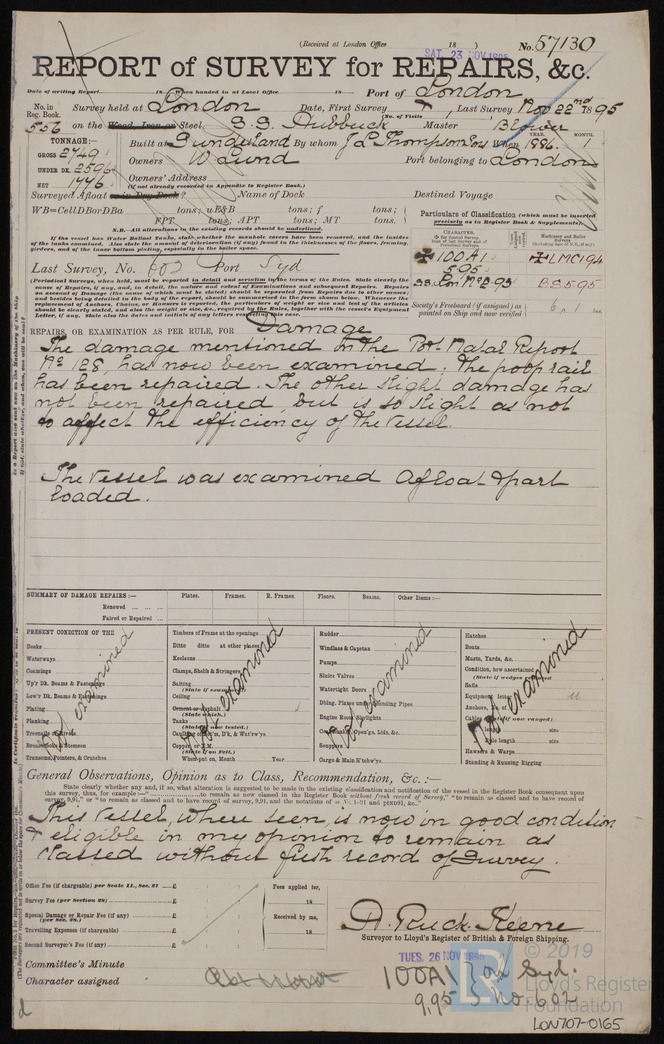 (Received at London Office
18 )
SAT. 23 NOV 1895
No. 57130
REPORT of SURVEY for REPAIRS, &c.
Date of writing Report 18 When handed in at Local Office 18 Port of London
No. in Reg. Book. Survey held at London Date, First Survey Last Survey Nov 22nd 1895
(No. of Visits )
556 on the Wood, Iron or Steel S.S. Hubbuck Master Blower
TONNAGE:— Built at Sunderland By whom J L Thompson & Sons When 1886 YEAR. MONTH. 1
GROSS 2749 Owners W Lund Port belonging to London
UNDER DK. 2596
NET 1776 Owners' Address
(if not already recorded in Appendix to Register Book.)
Surveyed Afloat or in Dry Dock? Name of Dock Destined Voyage
WB=CellDBorDBa tons; uE&B tons; f tons;
FPT tons; APT tons; MT tons.
N.B.—All alterations in the existing records should be underlined.
If the vessel has Water Ballast Tanks, state whether the manhole covers have been removed, and the insides
of the tanks examined. Also state the amount of deterioration (if any) found in the thicknesses of the floors, framing,
girders, and of the inner bottom plating, especially in the boiler space.
Particulars of Classification (which must be inserted
precisely as in Register Book & Supplements).
CHARACTER.
Machinery and Boiler Surveys
100A1
LMC 1,94
5,95
BS 5,95
Last Survey, No. 602 Port Syd
(Periodical Surveys, when held, must be reported in detail and seriatim in the terms of the Rules. State clearly the
cause of Repairs, if any, and, in detail, the nature and extent of Examinations and subsequent Repairs. Repairs
on account of Damage (the cause of which must be stated) should be separated from Repairs due to other causes;
and besides being detailed in the body of the report, should be summarised in the form shown below. Whenever the
replacement of Anchors, Chains, or Hawsers is reported, the particulars of weight or size and test of the articles
should be clearly stated, and also the weight or size, &c., required by the Rules, together with the vessel's Equipment
Letter, if any. State also the dates and initials of any letters respecting this case.
Society's Freeboard (if assigned) as
painted on Ship and now verified
REPAIRS, OR EXAMINATION AS PER RULE, FOR Damage
The damage mentioned in the Port Natal Report
No 128, has now been examined; the poop rail
has been repaired. The other slight damage has
not been repaired, but is so slight as not
to affect the efficiency of the vessel.
The vessel was examined afloat & part
loaded.
SUMMARY OF DAMAGE REPAIRS:— Plates. Frames. R. Frames. Floors. Beams. Other Items:—
Renewed ... ... ...
Faired or Repaired ...
PRESENT CONDITION OF THE
Decks
Waterways
Coamings
Up'r Dk. Beams & Fastenings
Low'r Dk. Beams & Fastenings
Plating
Planking
Treenails or Rivets
Breasthooks & Stemson
Transoms, Pointers, & Crutches
Not examined
Timbers of Frame at the openings
Ditto ditto at other places
Keelsons
Clamps, Shelfs & Stringers
Salting
(State if sound)
Ceiling
Cement or Asphalt
(State which.)
Tanks
(State if now tested.)
Caulking of B'm, D'k, & Wat'rw'ys
Copper, or Y.M.
(State if on Felt.)
When put on, Month Year
Not examined
Rudder
Windlass & Capstan
Pumps
Sluice Valves
Watertight Doors
Dblng. Plates under Sounding Pipes
Engine Room Skylights
Coal Bunk'r, Open'gs, Lids, &c.
Scuppers
Cargo & Main H'tchw'ys
Not examined
Hatches
Boats
Masts, Yards, &c.
Condition, how ascertained
(State if wedges removed)
Sails
Equipment letter
Anchors, No. of
Cables (State if now ranged)
length size
Hawsers & Warps
Standing & Running Rigging
Not examined
General Observations, Opinion as to Class, Recommendation, &c.:—
State clearly whether any, and if so, what alteration is suggested to be made in the existing classification and notification of the vessel in the Register Book consequent upon
this survey, thus, for example:—" to remain as now classed in the Register Book without fresh record of Survey," "to remain as classed and to have record of
survey, 9,91," or "to remain as classed and to have record of survey, 9,91, and the notations of
This vessel, where seen, is now in good condition
& eligible in my opinion to remain as
classed without fresh record of Survey.
Office Fee (if chargeable) per Scale II., Sec. 27 £
Survey Fee (per Section 28) £
Special Damage or Repair Fee (if any) £
(per Sec. 28.)
Travelling Expenses (if chargeable) £
Second Surveyor's Fee (if any) £
Fees applied for,
18
Received by me,
18
A. Ruck Keene
Surveyor to Lloyd's Register of British & Foreign Shipping.
Committee's Minute TUES. 26 NOV 1895
Character assigned 100A1 } on Syd.
9,95 } No. 602
© 2019
Lloyd's Register
Foundation
LON707-0165